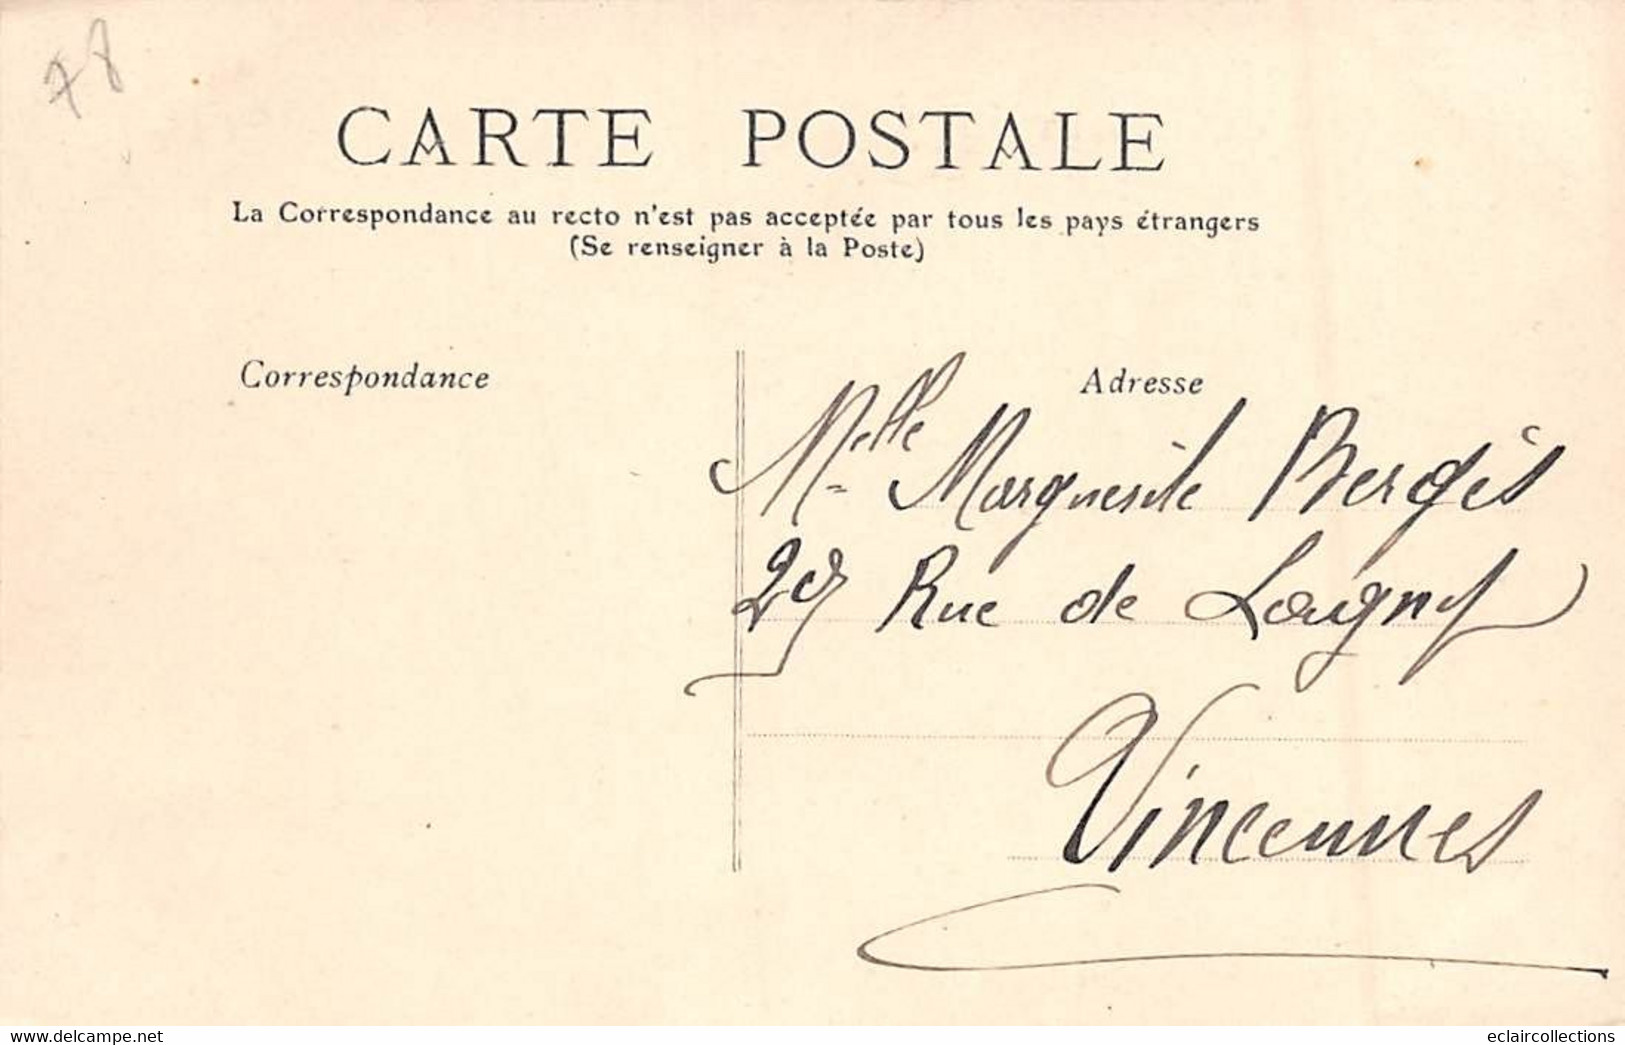 78
CARTE POSTALE
La Correspondance au recto n'est pas acceptée par tous les pays étrangers
(Se renseigner à la Poste)
Correspondance
Adresse
Melle Marguerite Bergès
29 Rue de Lagny
Vincennes
www.delcampe.net
eclaircollections